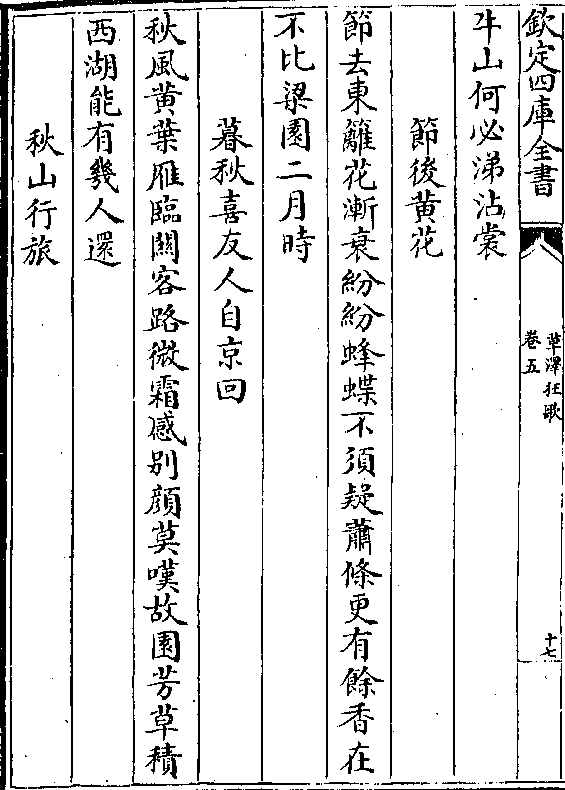 欽定四庫全書
草澤狂歌
卷五
十七
牛山何必涕沾裳
節後黄花
節去東籬花漸衰紛紛蜂蝶不須疑蕭條更有餘香在
不比梁園二月時
暮秋喜友人自京回
秋風黄葉雁臨闗客路微霜感别顔莫嘆故園芳草積
西湖能有幾人還
秋山行旅